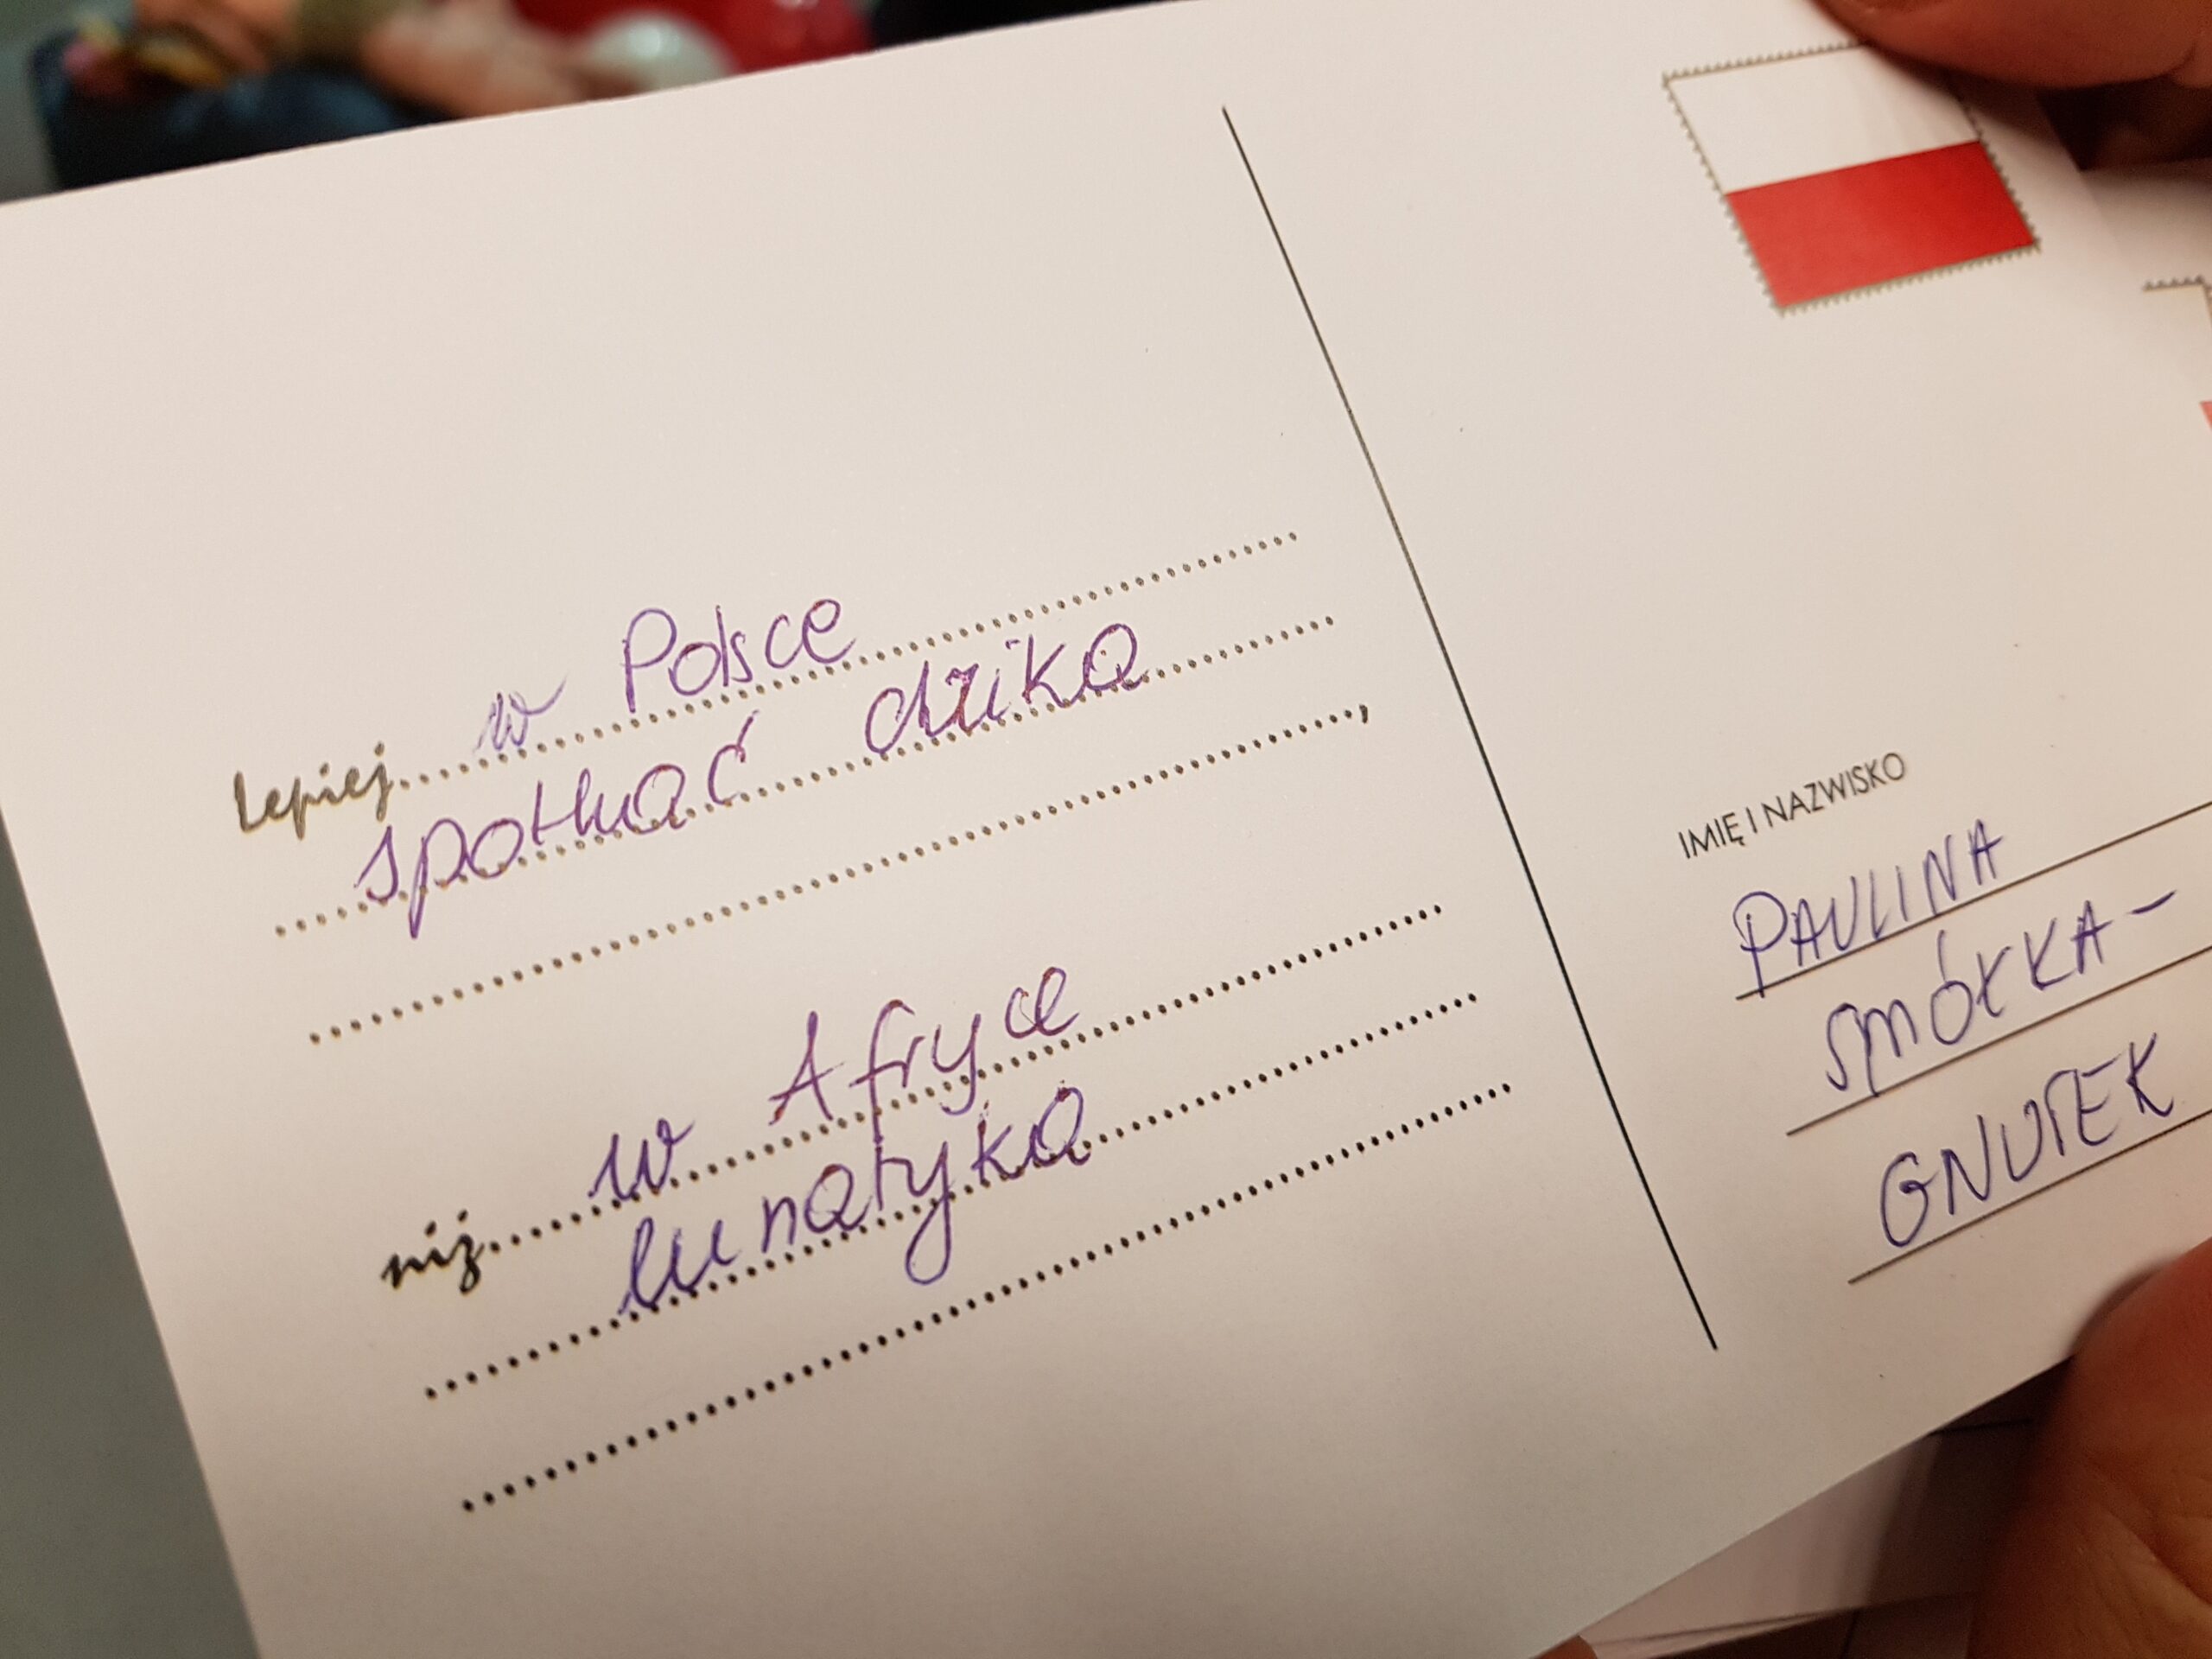 Lepiej w Polsce
spotkać dzika
,
niż w Afryce
lunatyka
IMIĘ I NAZWISKO
PAULINA
SMÓŁKA-
GNUTEK